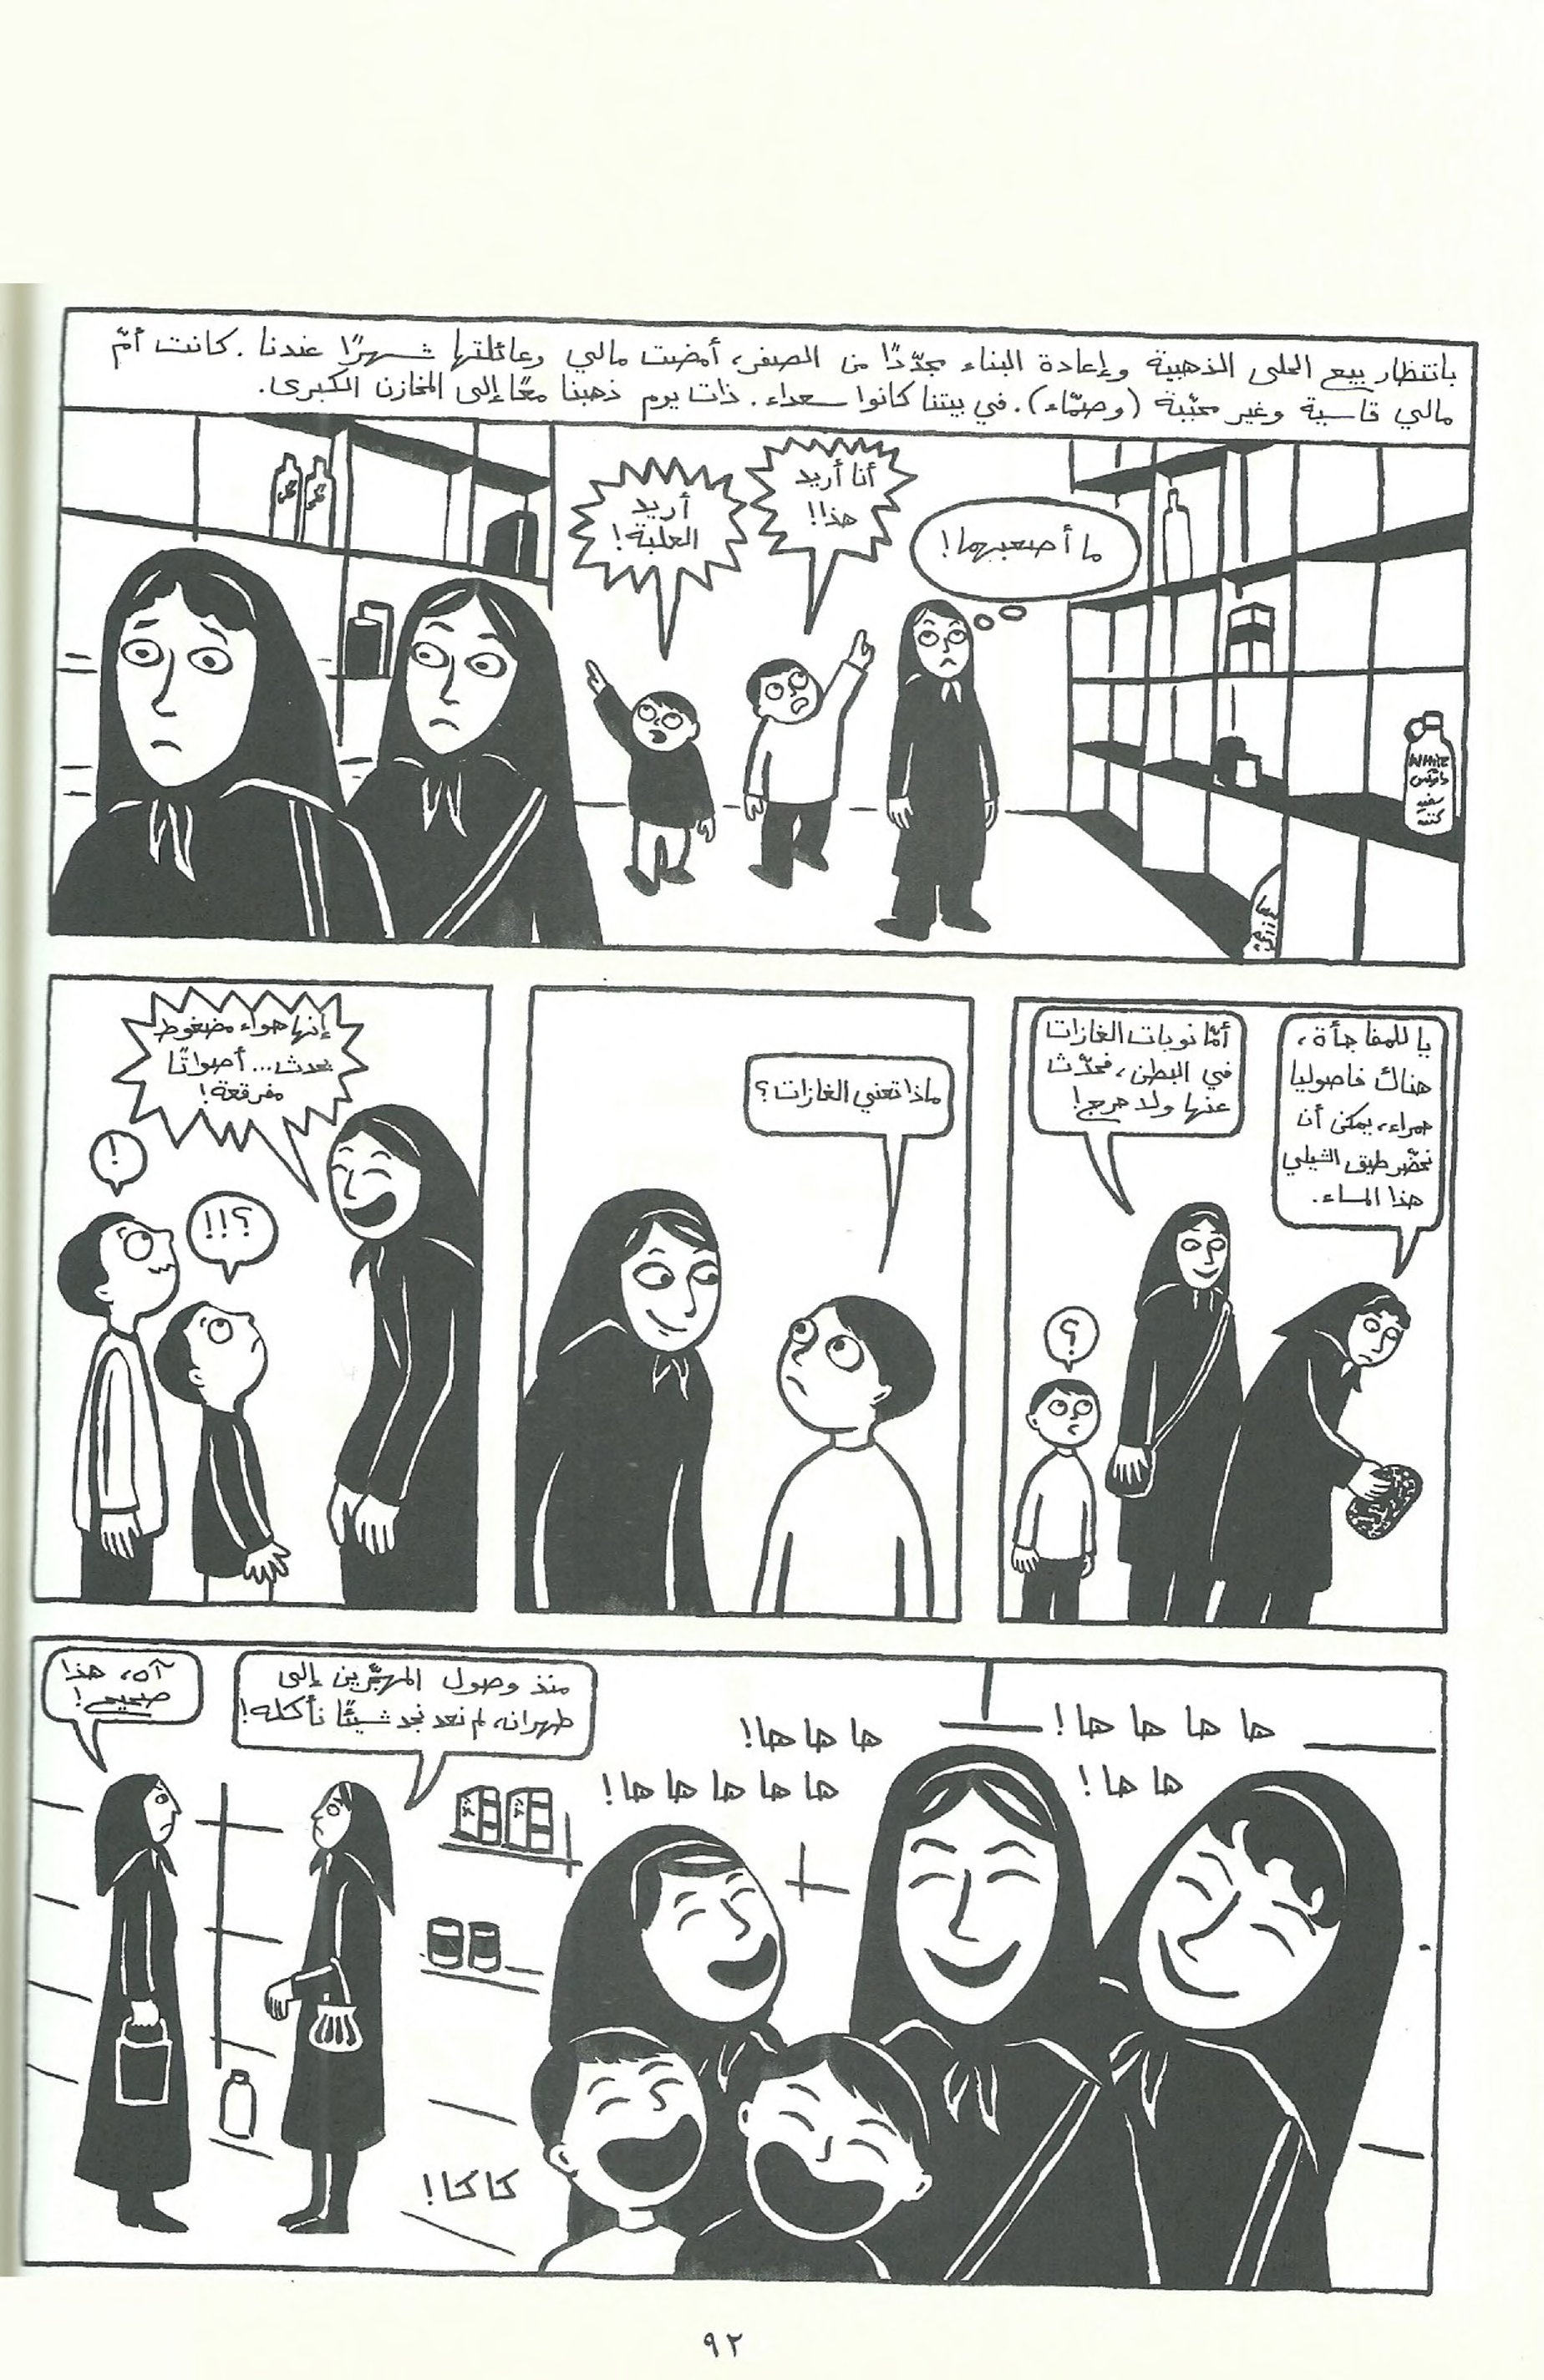 بانتظار بيع الحلى الذهبية وإعادة البناء مجدّدًا من الصفر، أمضت مالي وعائلتها شهرًا عندنا. كانت أمّ
مالي قاسية وغير محبّبة (وصمّاء). في بيتنا كانوا سعداء. ذات يوم ذهبنا معًا إلى المخازن الكبرى.
ما أصعبهما!
أنا أريد
هذا!
أريد
العلبة!
White
سفيد
كننده
يا للمفاجأة،
هناك فاصوليا
حمراء، يمكن أن
نحضّر طبق الشيلي
هذا المساء.
أمّا نوبات الغازات
في البطن، فحدّث
عنها ولا حرج!
؟
ماذا تعني الغازات؟
إنها هواء مضغوط
يحدث... أصواتًا
مفرقعة!
؟!!
!
ها ها ها ها!
ها ها!
ها ها ها!
ها ها ها ها ها!
كاكا!
منذ وصول المهجّرين إلى
طهران، لم نعد نجد شيئًا نأكله!
آه، هذا
صحيح!
٩٢